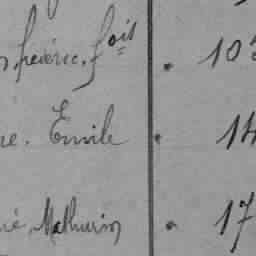 frédéric, fois 103
re. Emile 14
né, Mathurin 17